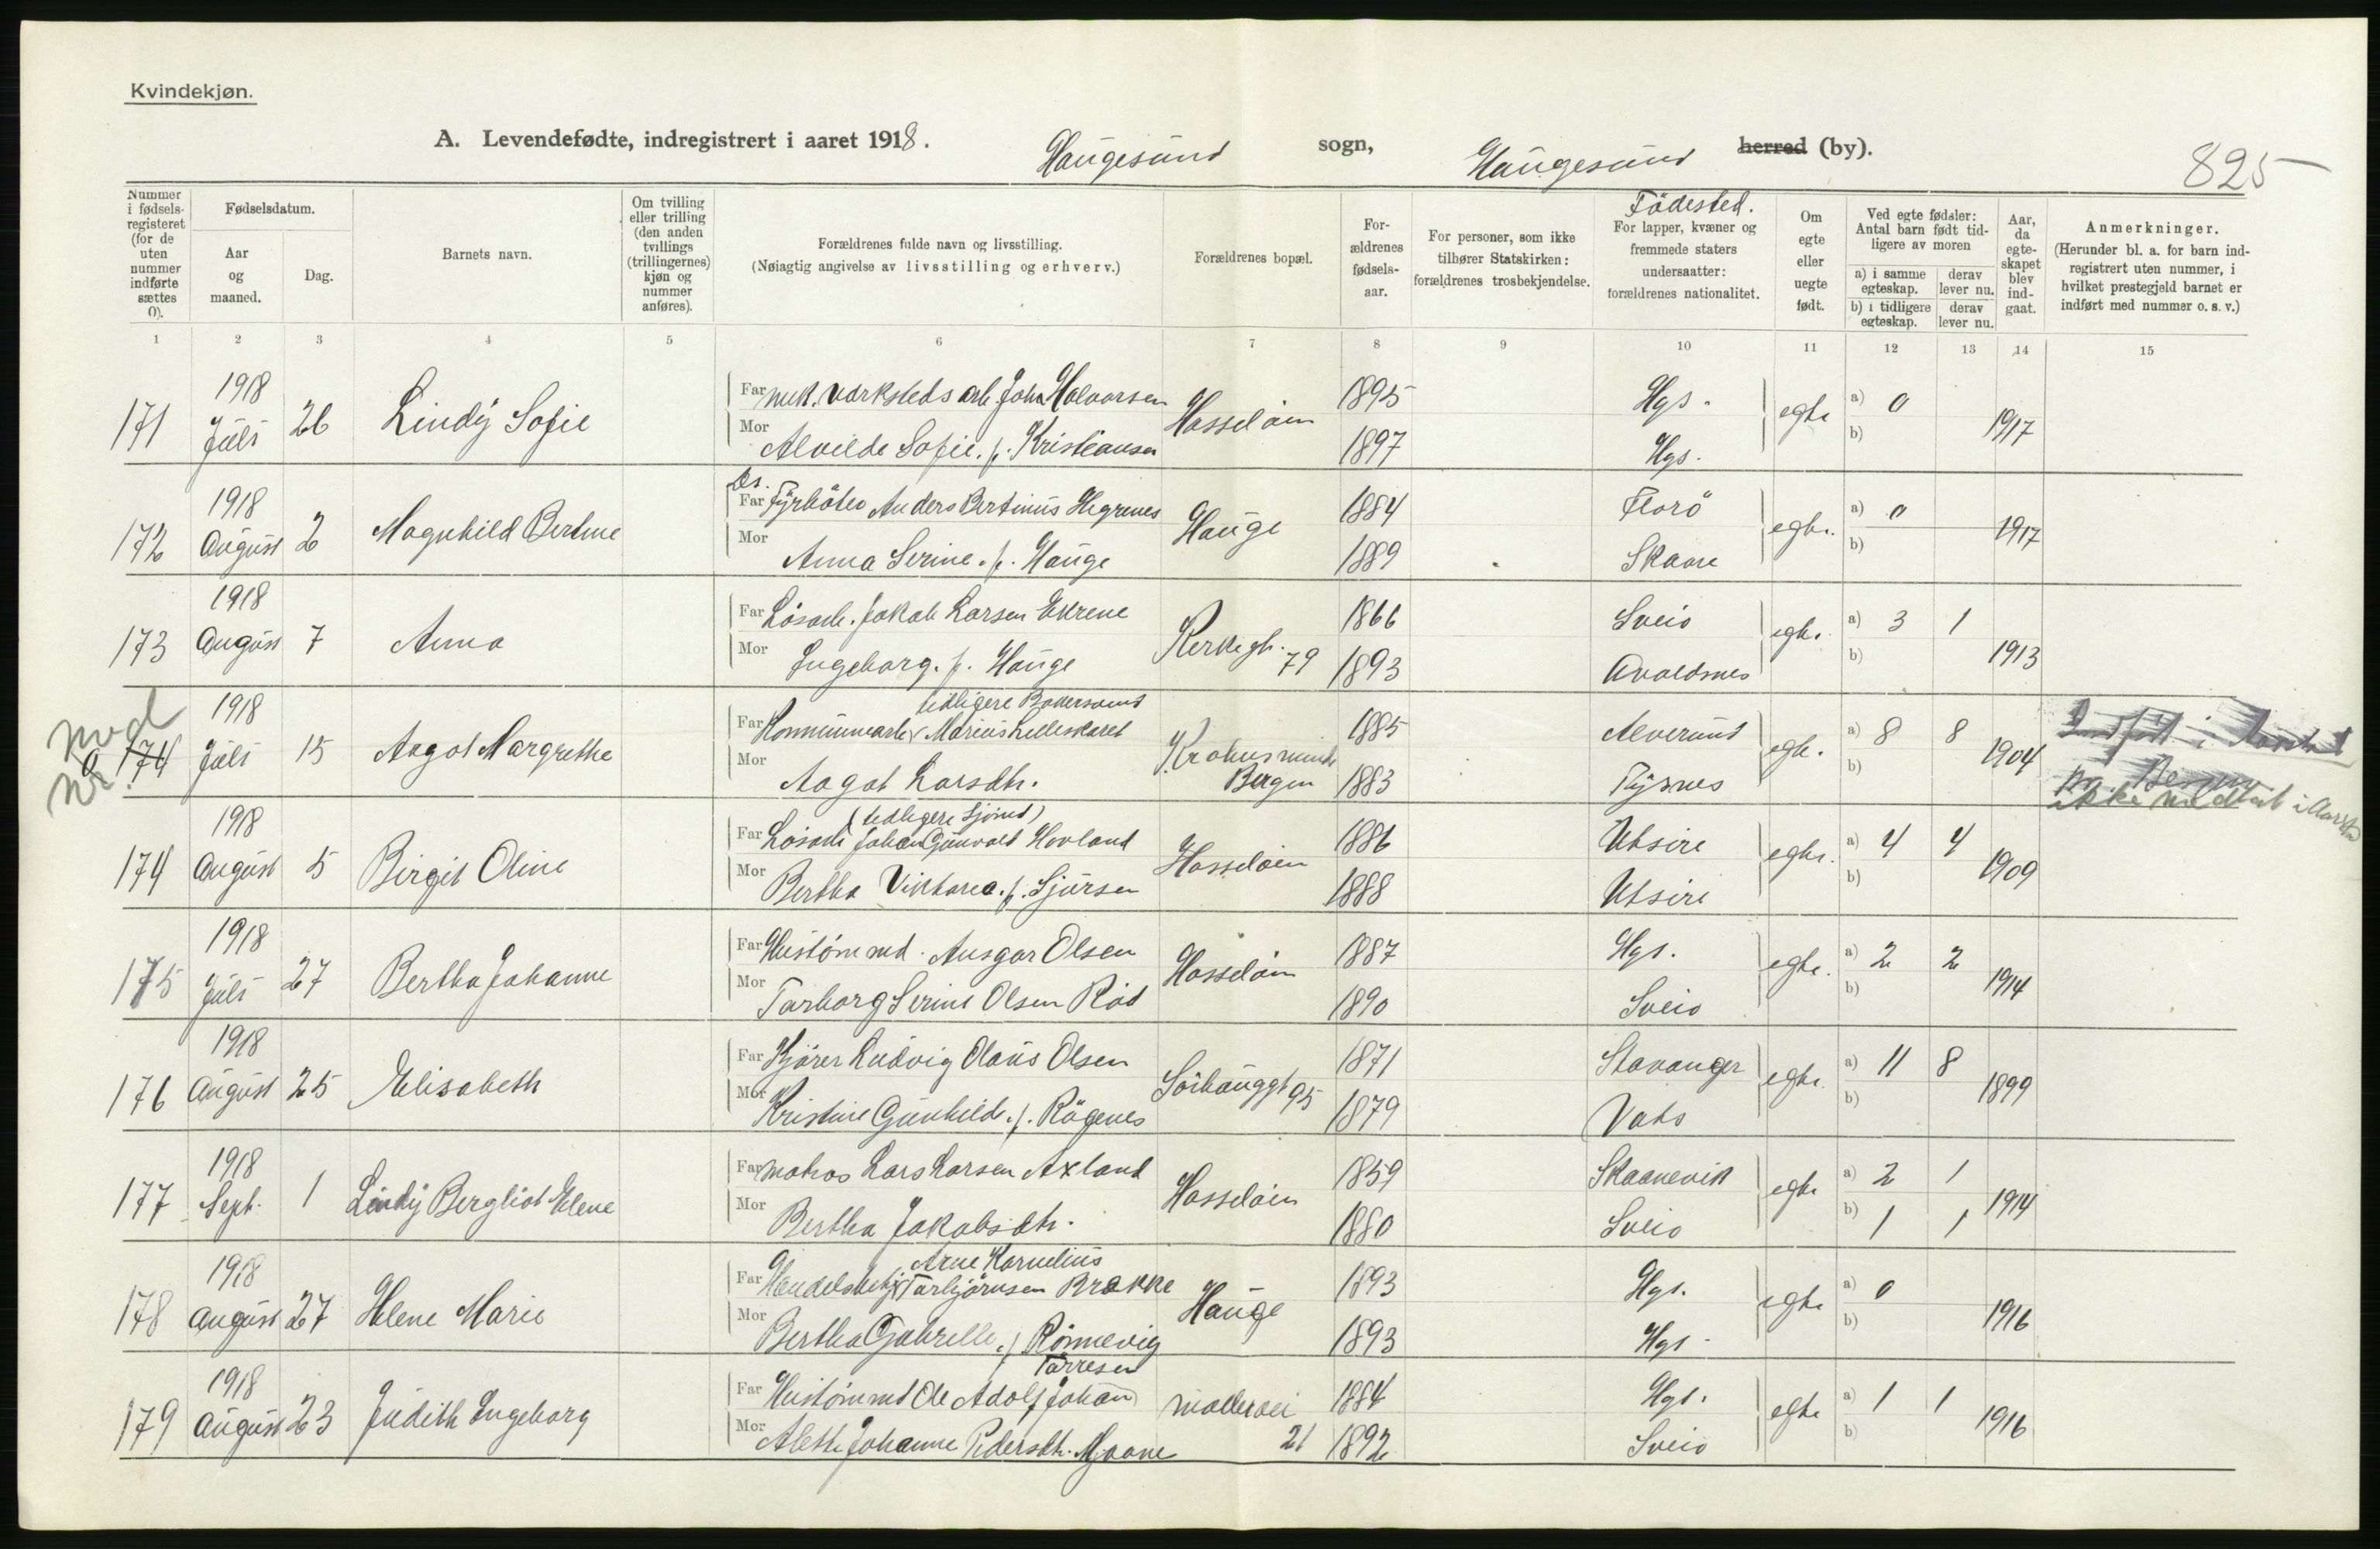 Kvindekjøn.
A. Levendefødte, indregistrert i aaret 1918. Haugesund sogn, Haugesund herred (by).
825
Nummer i fødselsregisteret (for de uten nummer indførte sættes 0).
Fødselsdatum.
Aar og maaned.
Dag.
Barnets navn.
Om tvilling eller trilling (den anden tvillings (trillingernes) kjøn og nummer anføres).
Forældrenes fulde navn og livsstilling.
(Nøiagtig angivelse av livsstilling og erhverv.)
Forældrenes bopæl.
Forældrenes fødselsaar.
For personer, som ikke tilhører Statskirken: forældrenes trosbekjendelse.
Födested.
For lapper, kvæner og fremmede staters undersaatter: forældrenes nationalitet.
Om egte eller uegte født.
Ved egte fødsler: Antal barn født tidligere av moren
a) i samme egteskap. derav lever nu.
b) i tidligere egteskap. derav lever nu.
Aar, da egteskapet blev indgaat.
Anmerkninger.
(Herunder bl. a. for barn indregistrert uten nummer, i hvilket prestegjeld barnet er indført med nummer o. s. v.)
1 2 3 4 5 6 7 8 9 10 11 12 13 14 15
171 1918 Juli 26 Lindy Sofie
Far mek. værksteds arb. John Halvorsen Hasseløen 1895 Hgs. egte a) 0 1917
Mor Alvilde Sofie. f. Kristiansen 1897 Hgs. b)
172 1918 August 2 Magnhild Bertine
Far Fyrböter Anders Bertinius Hegrenes Hauge 1884 Florö egte. a) 0 1917
Mor Anna Serine. f. Hauge 1889 Skaare b)
173 1918 August 7 Anna
Far Løsarb. Jakob Larsen Ekrene Kirkegt. 79 1866 Sveio egte. a) 3 1 1913
Mor Ingeborg. f. Hauge 1893 Avaldsnes b)
0 174 1918 Juli 15 Aagot Margrethe
tidligere
Far Kommunearb. Marius Lilleskaret Bergen 1885 Alversund egte. a) 8 8 1904
Mor Aagot Larsdtr. 1883 Tysnes b)
ikke medtat i
174 1918 August 5 Birgit Oline
(tidligere Sjömd)
Far Løsarb Johan Gunvald Hovland Hasseløen 1886 Utsire egte. a) 4 4 1909
Mor Bertha Viktoria. f. Sjursen 1888 Utsire b)
175 1918 Juli 27 Bertha Johanne
Far Hustömmd. Ansgar Olsen Hasseløen 1887 Hgs. egte. a) 2 2 1914
Mor Torborg Serine Olsen Röd 1890 Sveio b)
176 1918 August 25 Elisabeth
Far Kjører Ludvig Olaus Olsen Sörhauggt 95 1871 Stavanger egte. a) 11 8 1899
Mor Kristine Gunhild. f. Rögenes 1879 Vats b)
177 1918 Sept. 1 Lindy Bergliot Elene
Far matros Lars Larsen Axland Hasseløen 1859 Skaanevik egte a) 2 1 1914
Mor Bertha Jakobsdtr. 1880 Sveio b) 1 1
178 1918 August 27 Helene Marie
Arne Kornelius
Far Handelsbetj. Torbjörnsen Brekke Hauge 1893 Hgs. egte a) 0 1916
Mor Bertha Gabrielle. f. Rönnevig 1893 Hgs. b)
179 1918 August 23 Judith Ingeborg
Tørresen
Far Hustömmd Ole Adolf Johan Møllervei 21 1884 Hgs. egte a) 1 1 1916
Mor Aleth Johanne Pedersdtr. Mjaane 1892 Sveio b)